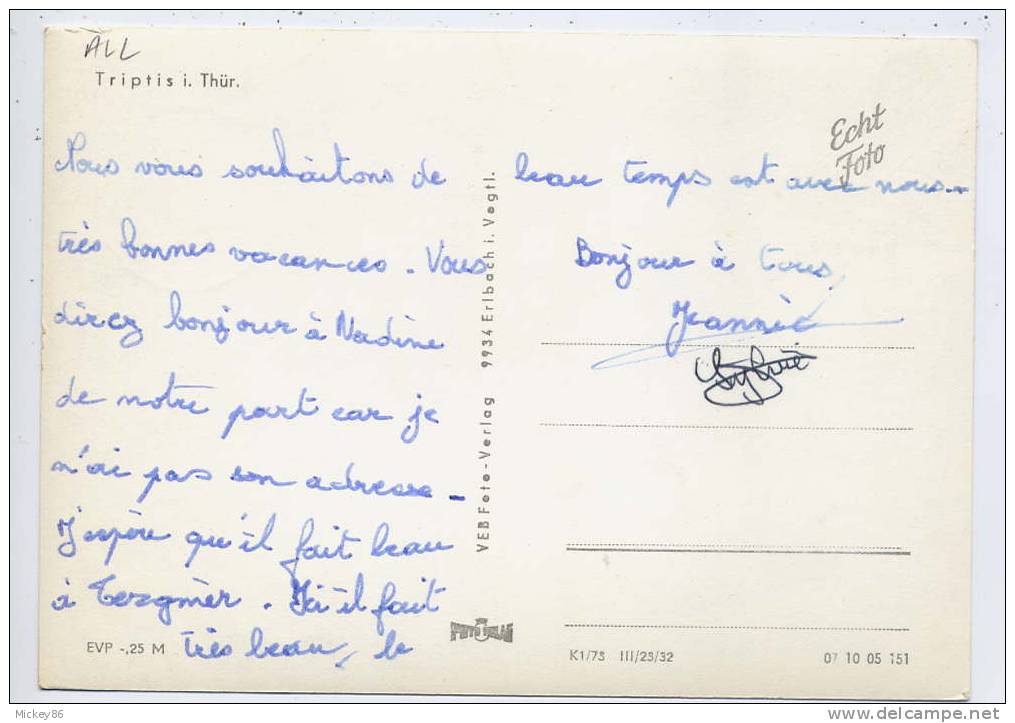 ALL
Triptis i. Thür.
Echt
Foto
Nous vous souhaitons de
très bonnes vacances. Vous
direz bonjour à Nadine
de notre part car je
n'ai pas son adresse -
J'espère qu'il fait beau
à . Ici il fait
très beau, le
beau temps est avec nous.
Bonjour à tous,
Jeannie
Sylvie
VEB Foto-Verlag 9934 Erlbach i. Vogtl.
EVP -,25 M
K1/73 III/23/32
07 10 05 151
Mickey86
www.delcampe.net